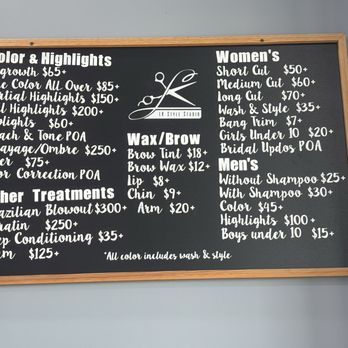 olor & Highlights
growth $65+
e Color All Over $85+
rtial Highlights $150+
l Highlights $200+
wlights $60+
ach & Tone POA
ayage/Ombre $250+
er $75+
or Correction POA
her Treatments
azilian Blowout $300+
ratin $250+
ep Conditioning $35+
m $125+
LK Style Studio
Wax/Brow
Brow Tint $18+
Brow Wax $12+
Lip $8+
Chin $9+
Arm $20+
*All color includes wash & style
Women's
Short Cut $50+
Medium Cut $60+
Long Cut $70+
Wash & Style $35+
Bang Trim $7+
Girls Under 10 $20+
Bridal Updos POA
Men's
Without Shampoo $25+
With Shampoo $30+
Color $45+
Highlights $100+
Boys under 10 $15+